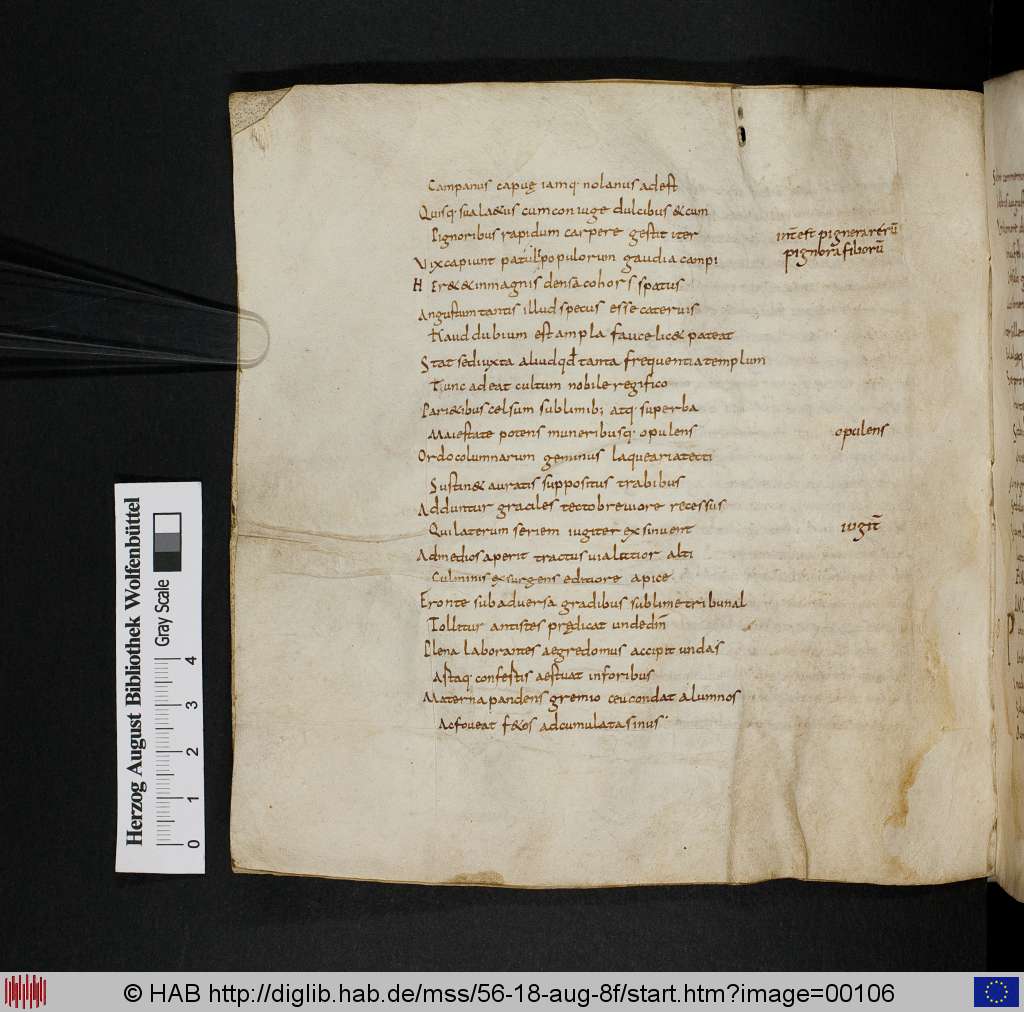 Campanus capuę iamq. nolanus adest
Quisq. sua l&us cum coniuge dulcibus & cum
Pignoribus rapidum carpere gestit iter
Vix capiunt patuli populorum gaudia campi
H er& & in magnis densa cohors spatiis
Angustum tantis illud specus esse cateruis
Haud dubium est ampla fauce lic& pateat
Stat sed iuxta aliud qđ tanta frequentia templum
Tunc adeat cultum nobile regifico
Pari&ibus celsum sublimib; atq. superba
Maiestate potens muneribusq. opulens
Ordo columnarum geminus laquearia tecti
Sustin& auratis suppositus trabibus
Adduntur graciles tecto breuiore recessus
Qui laterum seriem iugiter exsinuent
Ad medios aperit tractus uia latior alti
Culminis exsurgens editiore apice
Fronte sub aduersa gradibus sublime tribunal
Tollitur antistes prędicat unde dm̄
Plena laborantes aegre domus accipit undas
Astaq. confestis aestuat in foribus
Materna pandens gremio ceu condat alumnos
Ac foueat f&os adcumulata sinus
int̄ est pignera rerū
pignora filiorū
opulens
iugit̄
Herzog August Bibliothek Wolfenbüttel
Gray Scale
0 1 2 3 4
© HAB http://diglib.hab.de/mss/56-18-aug-8f/start.htm?image=00106